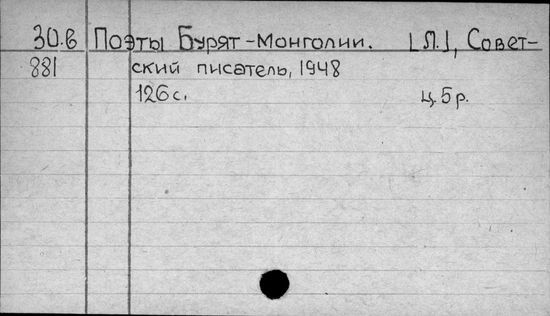 30.6 Поэты Бурят-Монголии. [Л.], Совет-
881 ский писатель, 1948
126 с. ц. 5 р.